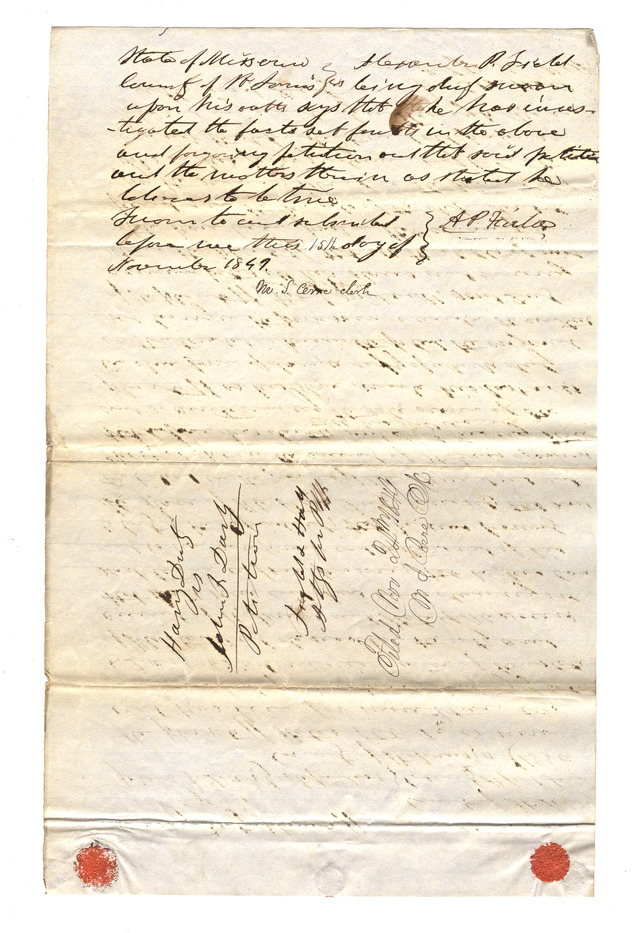 State of Missouri } Alexander P. Field
County of St. Louis } ss being duly sworn
upon his oath says that he has inves-
-tigated the facts set fourth in the above
and forgoing petition and that said petition
and the matters therein as stated he
believes to be true
Sworn to and subscribed } A P. Field
before me this 15th day of
November 1849.
M S Cerre clerk
Harry Duty
vs
John B Duty
Petition
Field & Hall
Attys for Plff
Filed Nov
M S Cerre Clk